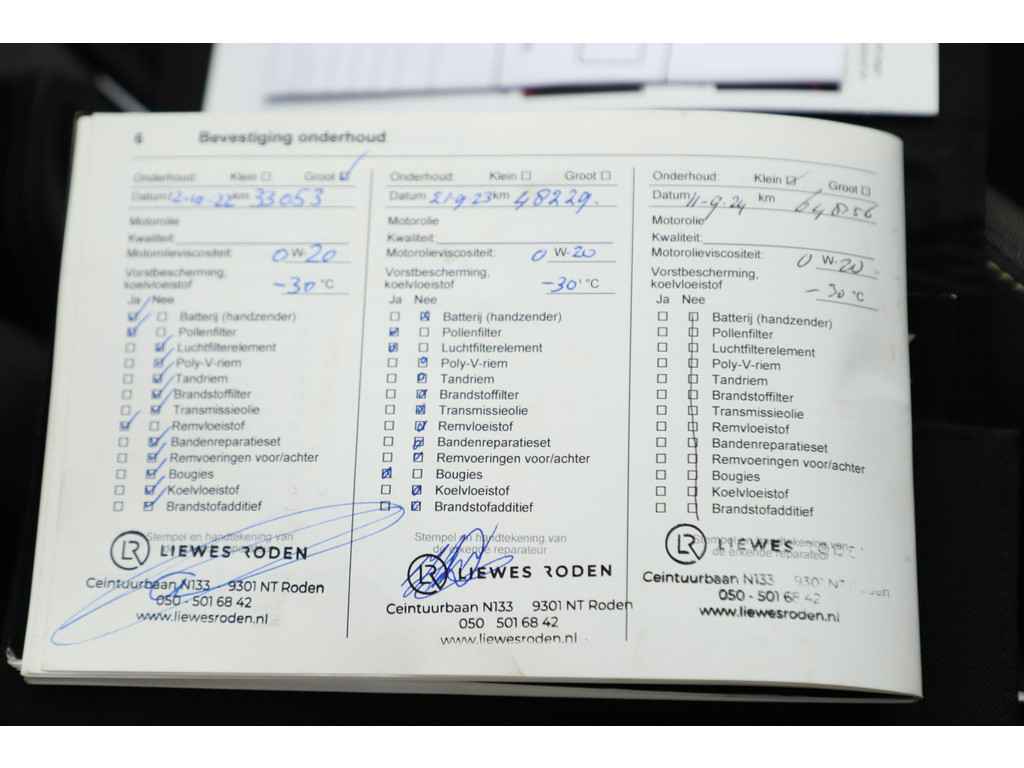 6 Bevestiging onderhoud
Onderhoud: Klein ☐ Groot ☑
Datum 12-10-22 km 33053
Motorolie
Kwaliteit:
Motorolieviscositeit: 0 W-20
Vorstbescherming,
koelvloeistof -30 °C
Ja Nee
☑ ☐ Batterij (handzender)
☑ ☐ Pollenfilter
☐ ☑ Luchtfilterelement
☐ ☑ Poly-V-riem
☐ ☑ Tandriem
☐ ☑ Brandstoffilter
☐ ☑ Transmissieolie
☑ ☐ Remvloeistof
☐ ☑ Bandenreparatieset
☐ ☑ Remvoeringen voor/achter
☐ ☑ Bougies
☐ ☑ Koelvloeistof
☐ ☑ Brandstofadditief
Stempel en handtekening van
LR LIEWES RODEN
Ceintuurbaan N133 9301 NT Roden
050 - 501 68 42
www.liewesroden.nl
Onderhoud: Klein ☐ Groot ☐
Datum 21-9-23 km 48229.
Motorolie
Kwaliteit:
Motorolieviscositeit: 0 W-20
Vorstbescherming,
koelvloeistof -30 °C
Ja Nee
☐ ☑ Batterij (handzender)
☑ ☐ Pollenfilter
☑ ☐ Luchtfilterelement
☐ ☑ Poly-V-riem
☐ ☑ Tandriem
☐ ☑ Brandstoffilter
☐ ☑ Transmissieolie
☐ ☑ Remvloeistof
☐ ☑ Bandenreparatieset
☐ ☑ Remvoeringen voor/achter
☑ ☐ Bougies
☐ ☑ Koelvloeistof
☐ ☑ Brandstofadditief
Stempel en handtekening van
de erkende reparateur
LR LIEWES RODEN
Ceintuurbaan N133 9301 NT Roden
050 501 68 42
www.liewesroden.nl
Onderhoud: Klein ☑ Groot ☐
Datum 11-9-24 km
Motorolie
Kwaliteit:
Motorolieviscositeit: 0 W-20.
Vorstbescherming,
koelvloeistof -30 °C
Ja Nee
☐ ☐ Batterij (handzender)
☐ ☐ Pollenfilter
☐ ☐ Luchtfilterelement
☐ ☐ Poly-V-riem
☐ ☐ Tandriem
☐ ☐ Brandstoffilter
☐ ☐ Transmissieolie
☐ ☐ Remvloeistof
☐ ☐ Bandenreparatieset
☐ ☐ Remvoeringen voor/achter
☐ ☐ Bougies
☐ ☐ Koelvloeistof
☐ ☐ Brandstofadditief
Stempel en handtekening van
de erkende reparateur
LR LIEWES
Ceintuurbaan N133 9301 NT
050 - 501 68 42
www.liewesroden.nl